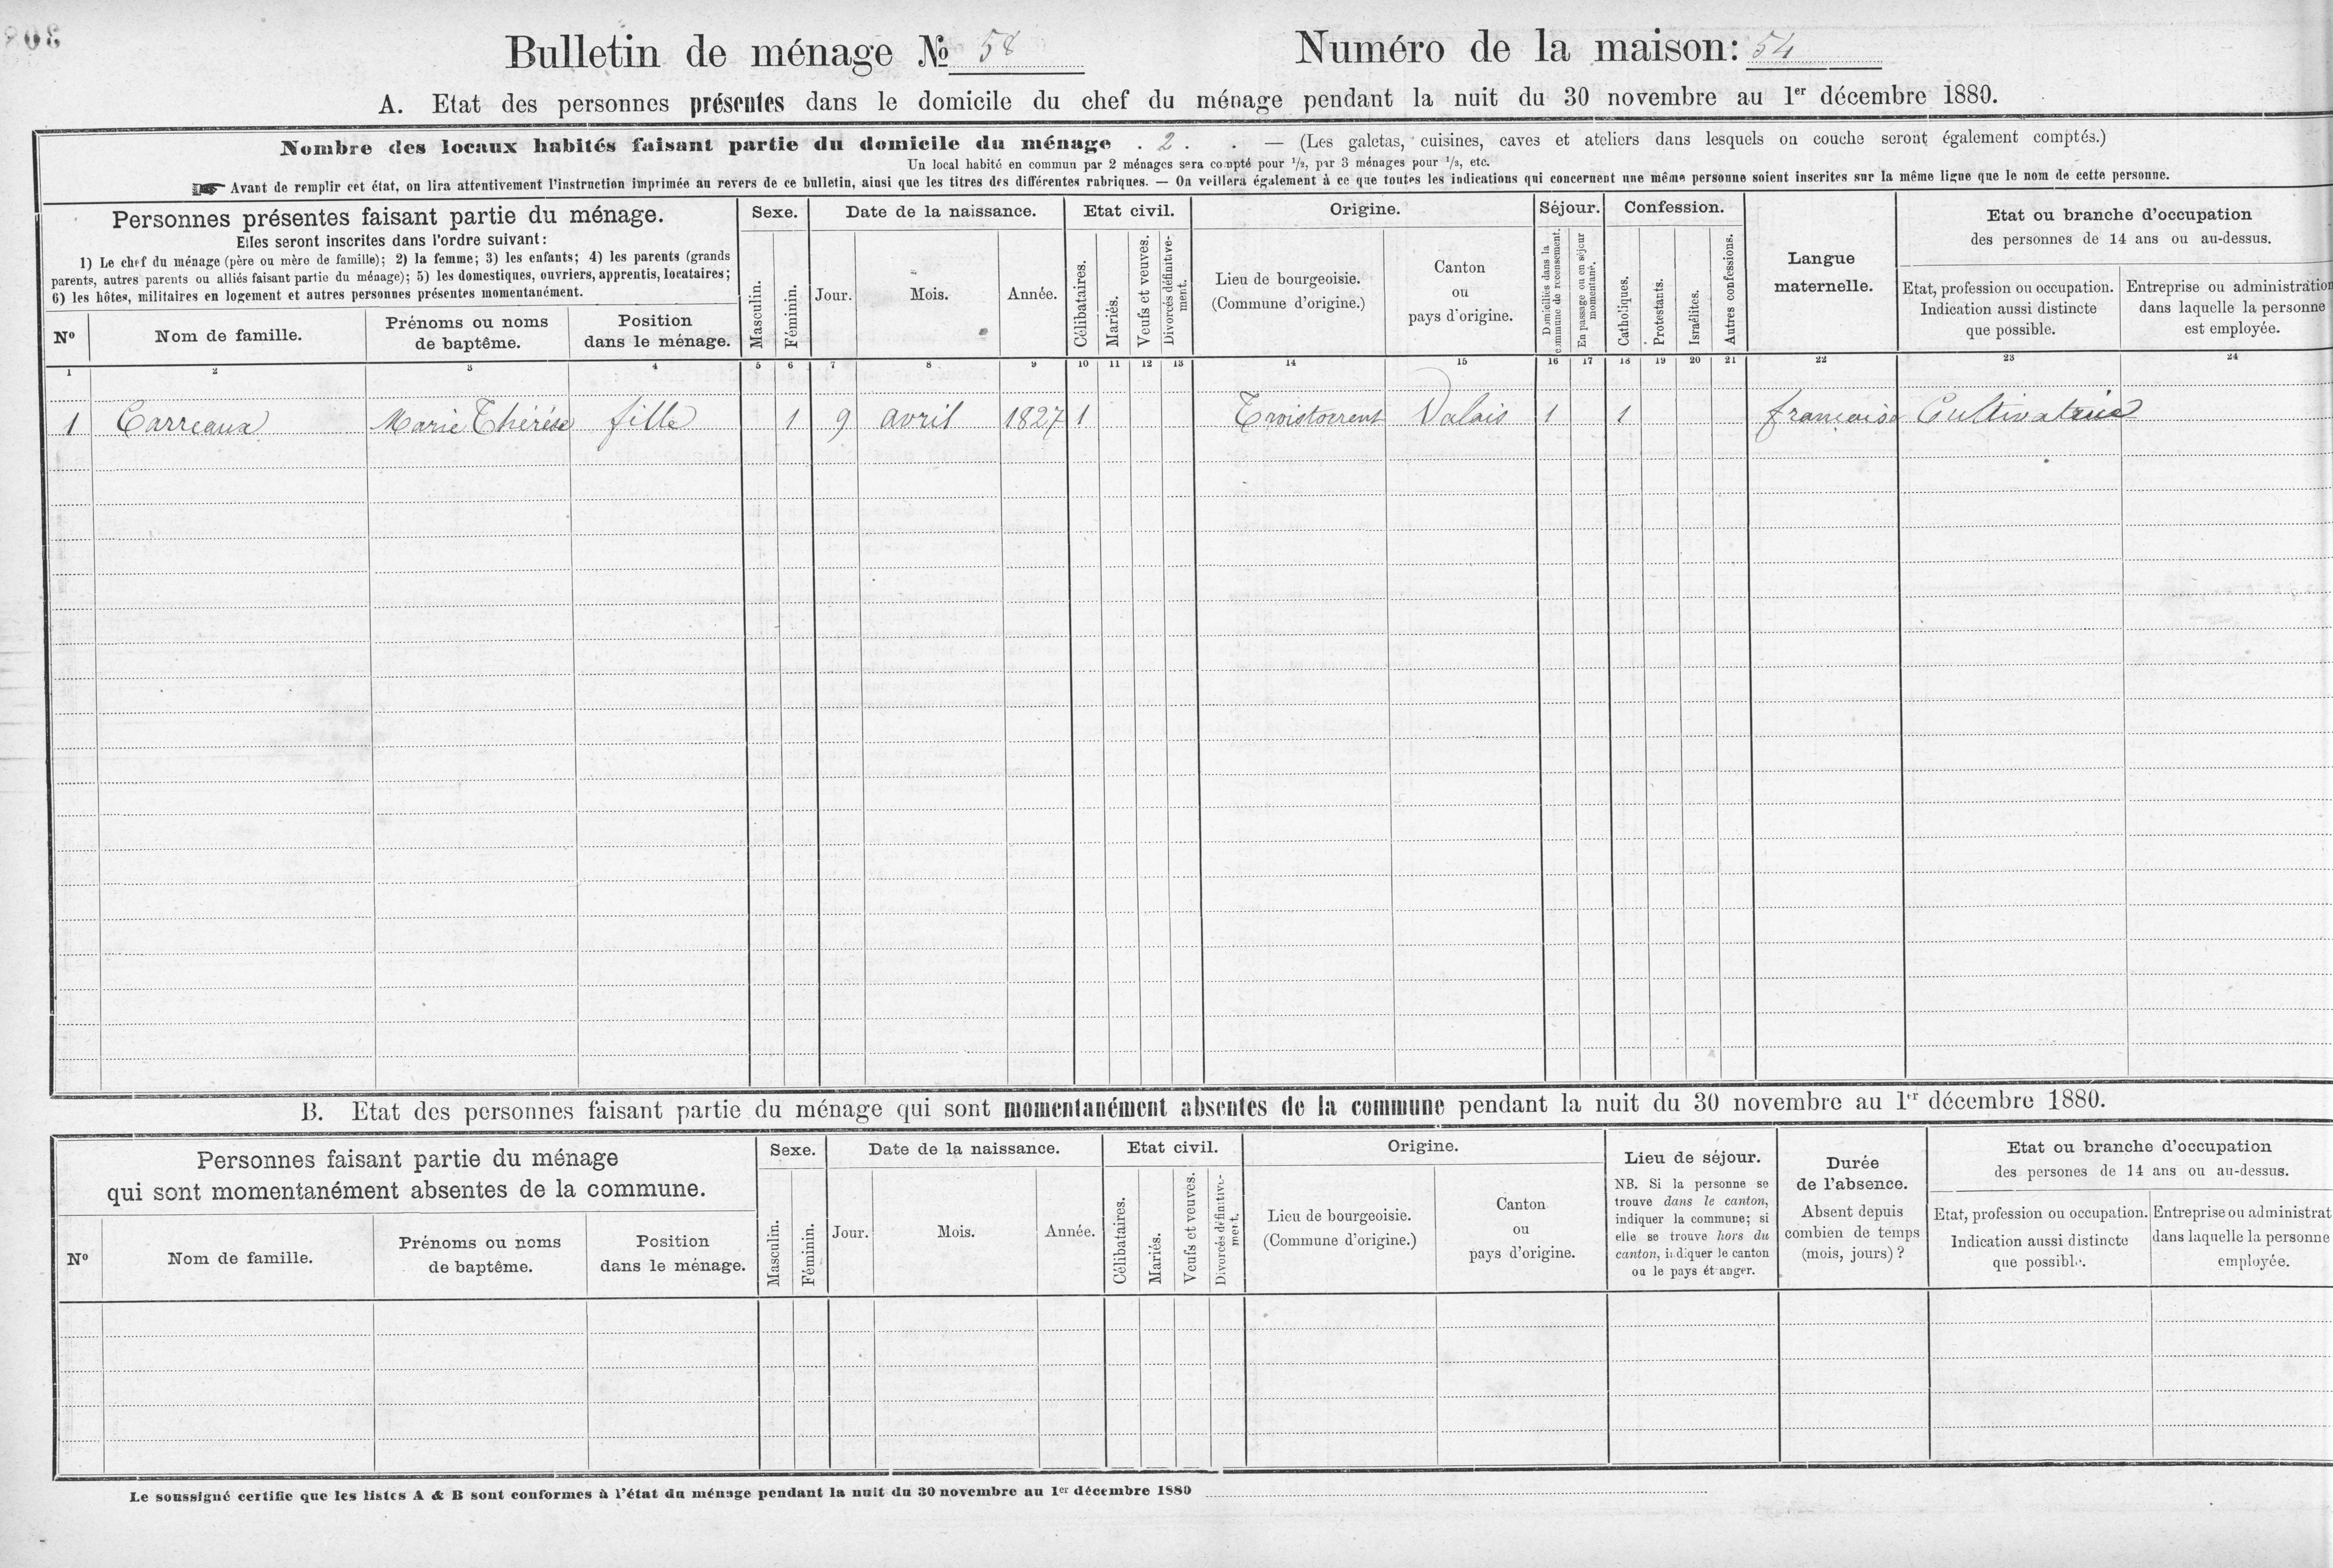 308
Bulletin de ménage № 58
Numéro de la maison: 54
A. Etat des personnes présentes dans le domicile du chef du ménage pendant la nuit du 30 novembre au 1er décembre 1880.
Nombre des locaux habités faisant partie du domicile du ménage . 2 . . — (Les galetas, cuisines, caves et ateliers dans lesquels on couche seront également comptés.)
Un local habité en commun par 2 ménages sera compté pour 1/2, par 3 ménages pour 1/3, etc.
☛ Avant de remplir cet état, on lira attentivement l'instruction imprimée au revers de ce bulletin, ainsi que les titres des différentes rubriques. — On veillera également à ce que toutes les indications qui concernent une même personne soient inscrites sur la même ligne que le nom de cette personne.
Personnes présentes faisant partie du ménage.
Elles seront inscrites dans l'ordre suivant:
1) Le chef du ménage (père ou mère de famille); 2) la femme; 3) les enfants; 4) les parents (grands
parents, autres parents ou alliés faisant partie du ménage); 5) les domestiques, ouvriers, apprentis, locataires;
6) les hôtes, militaires en logement et autres personnes présentes momentanément.
Nº
Nom de famille.
Prénoms ou noms
de baptême.
Position
dans le ménage.
Sexe.
Masculin.
Féminin.
Date de la naissance.
Jour.
Mois.
Année.
Etat civil.
Célibataires.
Mariés.
Veufs et veuves.
Divorcés définitive-
ment.
Origine.
Lieu de bourgeoisie.
(Commune d'origine.)
Canton
ou
pays d'origine.
Séjour.
Domiciliés dans la
commune de recensement.
En passage ou en séjour
momentané.
Confession.
Catholiques.
Protestants.
Israélites.
Autres confessions.
Langue
maternelle.
Etat ou branche d'occupation
des personnes de 14 ans ou au-dessus.
Etat, profession ou occupation.
Indication aussi distincte
que possible.
Entreprise ou administration
dans laquelle la personne
est employée.
1 2 3 4 5 6 7 8 9 10 11 12 13 14 15 16 17 18 19 20 21 22 23 24
1 Carreaux Marie Thérése fille 1 9 avril 1827 1 Troistorrent Valais 1 1 francaise Cultivatrice
B. Etat des personnes faisant partie du ménage qui sont momentanément absentes de la commune pendant la nuit du 30 novembre au 1er décembre 1880.
Personnes faisant partie du ménage
qui sont momentanément absentes de la commune.
Nº
Nom de famille.
Prénoms ou noms
de baptême.
Position
dans le ménage.
Sexe.
Masculin.
Féminin.
Date de la naissance.
Jour.
Mois.
Année.
Etat civil.
Célibataires.
Mariés.
Veufs et veuves.
Divorcés définitive-
ment.
Origine.
Lieu de bourgeoisie.
(Commune d'origine.)
Canton
ou
pays d'origine.
Lieu de séjour.
NB. Si la personne se
trouve dans le canton,
indiquer la commune; si
elle se trouve hors du
canton, indiquer le canton
ou le pays étranger.
Durée
de l'absence.
Absent depuis
combien de temps
(mois, jours) ?
Etat ou branche d'occupation
des persones de 14 ans ou au-dessus.
Etat, profession ou occupation.
Indication aussi distincte
que possible.
Entreprise ou administrat
dans laquelle la personne
employée.
Le soussigné certifie que les listes A & B sont conformes à l'état du ménage pendant la nuit du 30 novembre au 1er décembre 1880